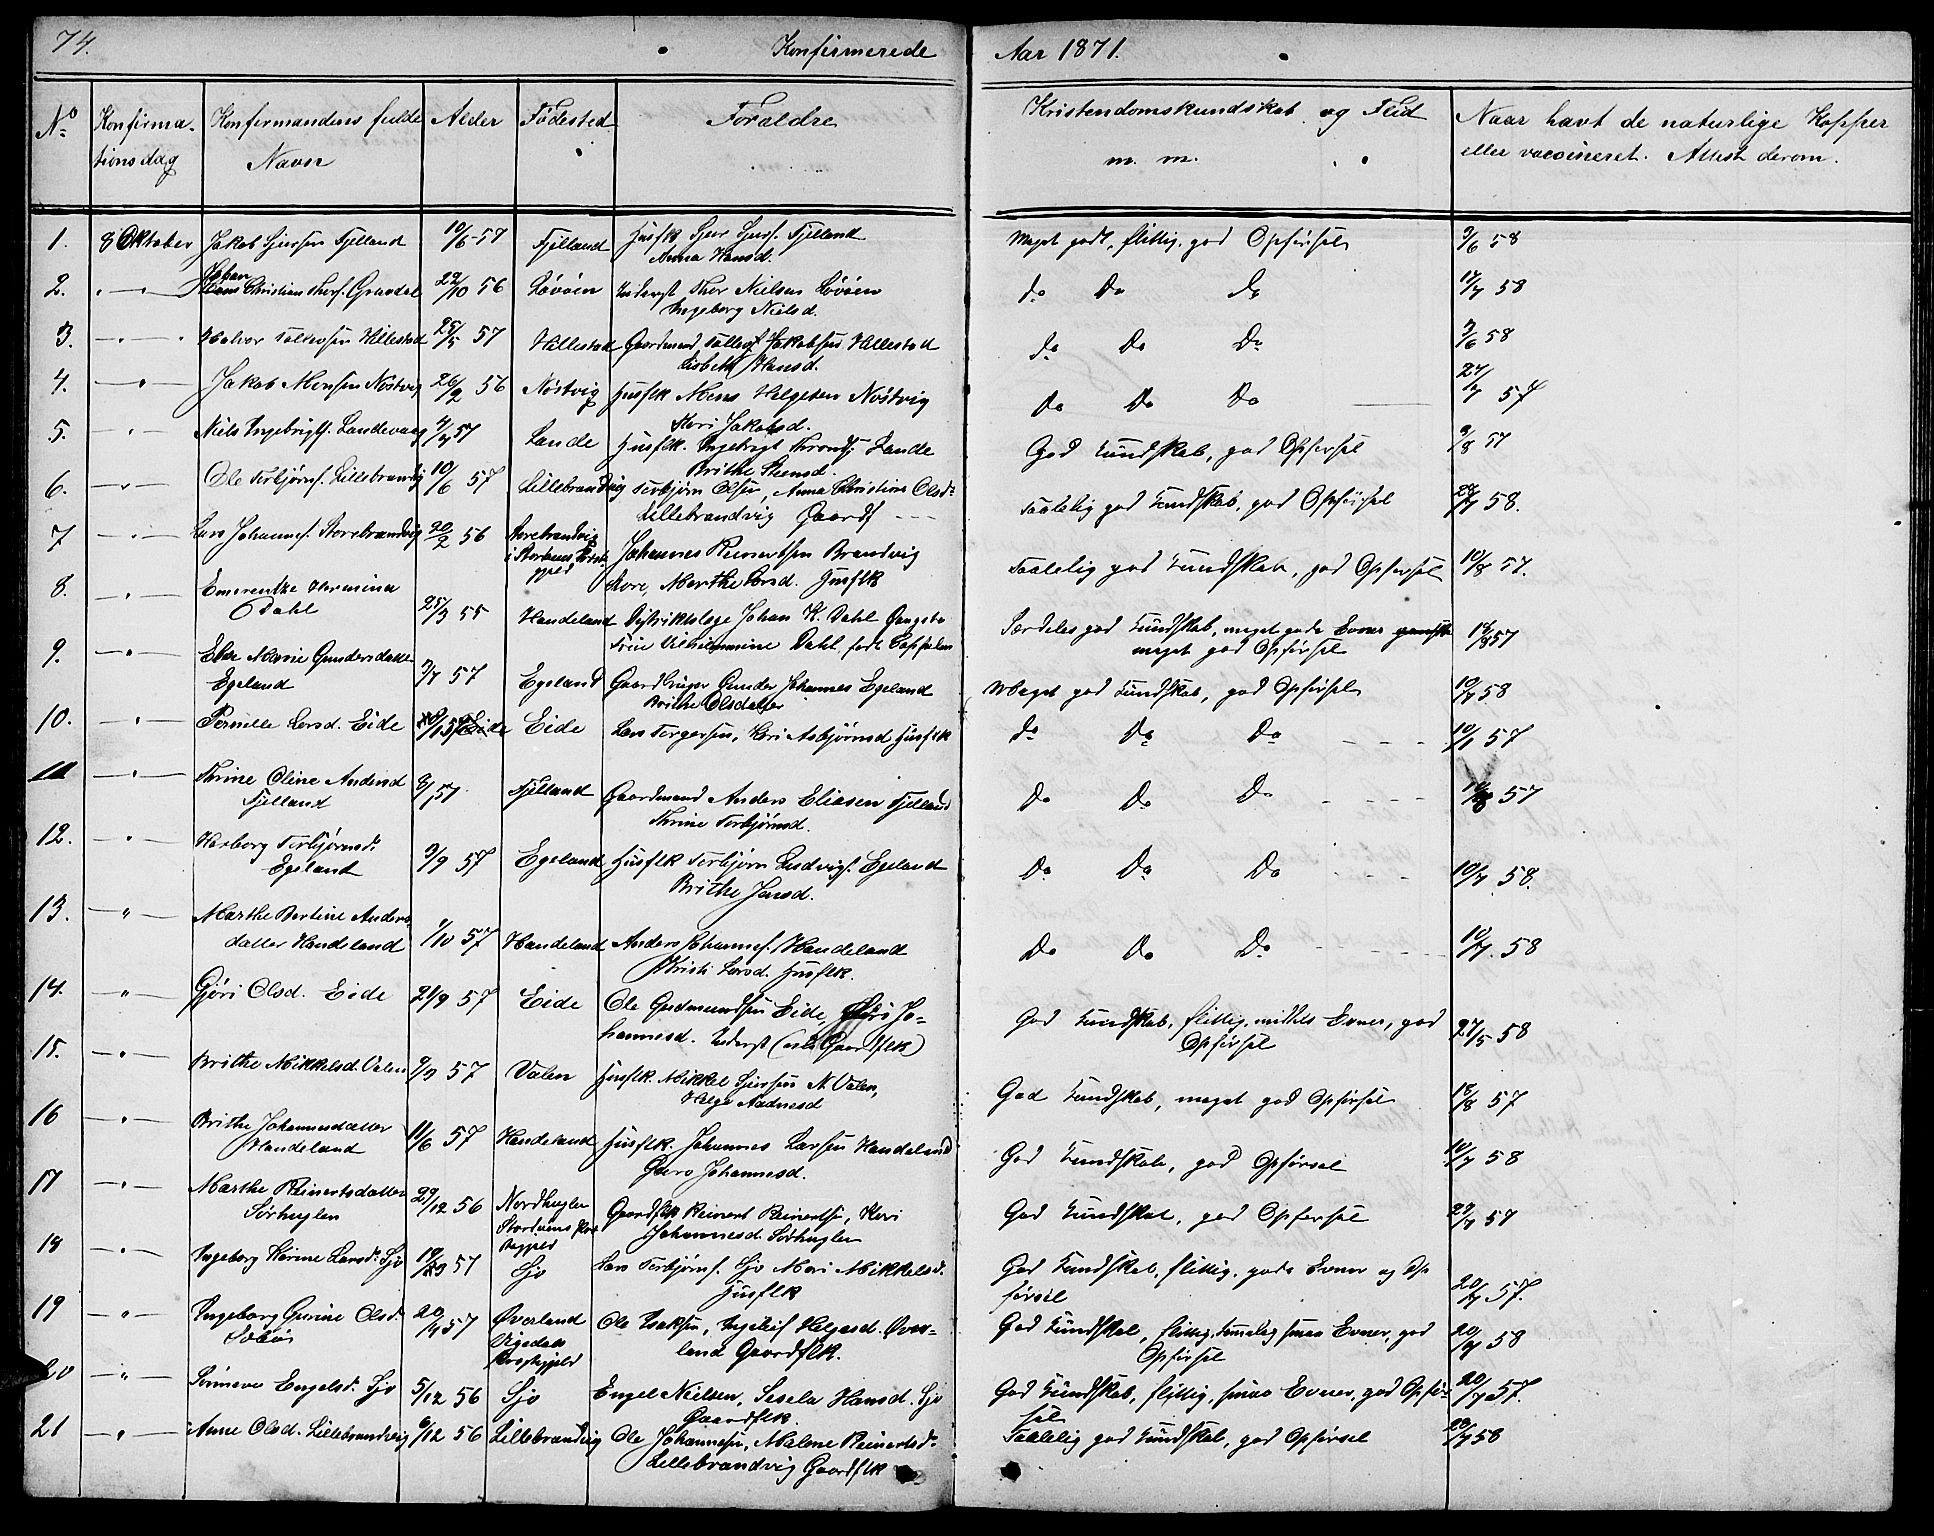 74. Konfirmerede Aar 1871.
No Konfirmationsdag Konfirmandens fulde Navn Alder Födested Foraldre Kristendomskundskab og Flid m. m. Naar havt de naturlige Kopper eller vaccineret. Attest derom.
1. 8 Oktober Jakob Sjursen Fjelland 10/6-57 Fjelland Husflk Sjur Sjurs. Fjelland
Anna Hansd. Meget godt, flittig, god Opförsel 9/6 58
2. " Johan Christian Thors. Grandal 22/10 56 Lövöen Inderst Thor Nielsen Lövöen
Ingeborg Nielsd. do Do Do 17/7 58
3. " Halvor Tollevsen Hillestad 25/5 57 Hillestad Gaardmand Jakobsen Hillestad
Lisbeth Hansd. do Do Do 9/6 58
4. " Jakob Monsen Nöstvig 26/2 56 Nöstvig Husflk Mons Helgesen Nöstvig
Kari Jakobsd. Do Do Do 57
5. " Niels Ingebrigts. Landevaag 4/4 57 Lande Husflk. Ingebrigt Lande
Brithe Steensd. God Kundskab, god Opförsel 9/8 57
6. " Ole Torbjörns. Lillebrandvig 10/6 57 Lillebrandvig Torbjörn Olsen, Anna Christine Olsd.
Lillebrandvig Gaardf Taalelig god Kundskab, god Opförsel 58.
7 " Lars Johannes. Storebrandvig 20/2 56 Storebrandvig i Johannes Reinertsen Brandvig
Store, Marthe Larsd. Husflk Taalelig god Kundskab, god Opförsel 10/8 57.
8. " Emerentze Hermina
Dahl 25/3 55 Handeland Distriktslæge Johan K. Dahl
Vilhelmmine Dahl födt Særdeles god Kundskab, meget gode Evner
meget god Opförsel 18/8 57
9. " Marie Gundersdatter
Egeland 57 Egeland Gaardbruger Gunder Johannes Egeland
Brithe Olsdatter Meget god Kundskab, god Opförsel 10/7 58
10. " Pernille Larsd. Eide Eide Lars Torgersen, Kari Asbjörnsd Husflk do Do Do 57
11 " Thrine Oline Andersd
Fjelland 57 Fjelland Gaardmand Anders Eliasen Fjelland
Thrine Torbjörnsd. Do Do Do 57
12. " Herborg Torbjörnsd.
Egeland 9/9 57 Egeland Husflk Torbjörn Ludvigs. Egeland
Brithe Jensd. Do Do Do 10/7 58.
13. " Marthe Bertine Anders-
datter Handeland 1/10 57 Handeland Anders Johannes. Handeland
Kristi Larsd. Husflk. Do Do Do 10/7. 58
14. " Gjöri Olsd. Eide 21/9 57 Eide Ole Gudmundsen Eide, Jo-
hannesd. Inderst Gaardflk) God Kundskab, flittig, middels Evner, god
Opförsel 27/5 58
15. " Brithe Mikkelsd. Valen 9/9 57 Valen Husflk. Mikkel Sjursen N. Valen,
Helga Aadnesd God Kundskab, meget god Opförsel 18/8 57
16 " Brithe Johannesdatter
Handeland 11/6 57 Handeland Husflk. Johannes Larsen Handeland
Guro Johannesd. God Kundskab, god Opförsel 10/7 58
17 " Marthe Reinertsdatter
Sörhuglen 29/12 56 Nordhuglen Gaardflk Reinert Reinertsen, Kari
Johannesd Sörhuglen God Kundskab, god Opförsel 57
18 " Ingeborg Karine Larsd. Sjo 57 Sjo Lars Torbjörns. Sjo Mari Mikkelsd.
Husflk God Kundskab, flittig, gode Evner og Op
försel 57.
19 " Ingeborg Gurine Olsd. 57 Øverland Ole Isaksen, Helgesd. Over-
land Gaardflk. God Kundskab, flittig, temelig smaa Evner, god
Opförsel 58
20 " Sönneve Engelsd. Sjo 5/12 56 Sjo Engel Nielsen, Sesela Hansd. Sjo
Gaardflk. God Kundskab, flittig, smaa Evner, god Opför-
sel 57.
21 " Anne Olsd. Lillebrandvig 6/12 56 Lillebrandvig Ole Johannesen, Malene Reinertsd.
Lillebrandvig Gaardflk Taalelig god Kundskab, god Opförsel 58